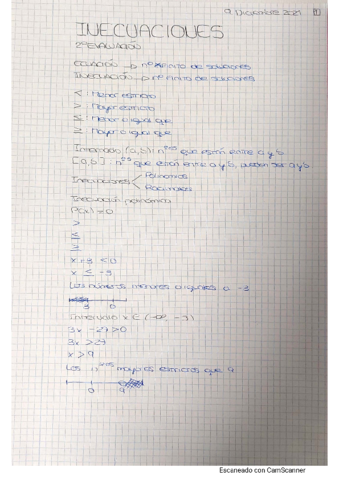 9 Diciembre 2021 1
INECUACIONES
2ª EVALUACIÓN
ECUACIÓN → nº finito de soluciones
INECUACIÓN → nº infinito de soluciones
< Menor estricto
> Mayor estricto
≤ Menor o igual que
≥ Mayor o igual que
Intervalo (a,b): nºs que están entre a y b
[a,b]: nºs que están entre a y b, pueden ser a y b
Inecuaciones Polinomios
Racionales
Inecuación polinómica
P(x) ≠ 0
>
≤
≥
x + 3 ≤ 0
x ≤ -3
Los números menores o iguales a -3
3 0
Intervalo x ∈ (-∞, -3)
3x - 27 > 0
3x > 27
x > 9
Los nºs mayores estrictos que 9
0 9
Escaneado con CamScanner